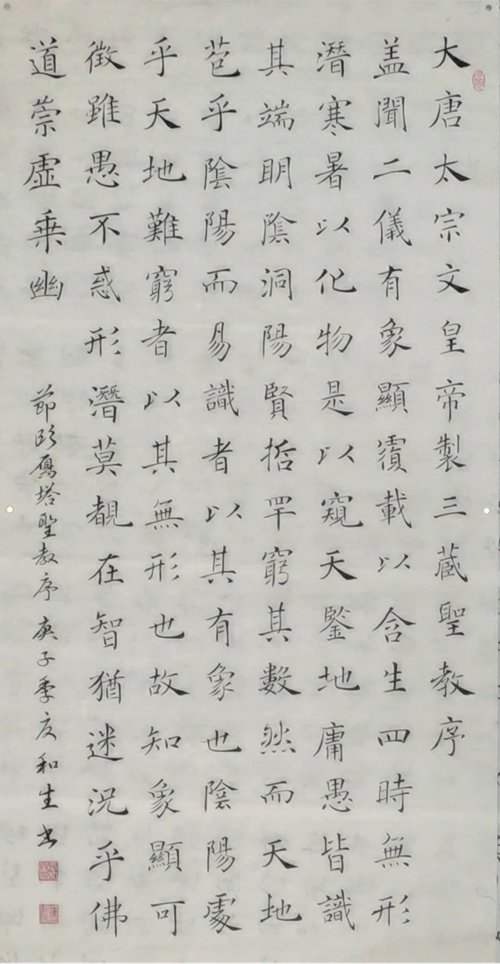 大唐太宗文皇帝製三藏聖教序
盖聞二儀有象顯覆載以含生四時無形
潛寒暑以化物是以窺天鑒地庸愚皆識
其端明陰洞陽賢哲罕窮其數然而天地
苞乎陰陽而易識者以其有象也陰陽處
乎天地難窮者以其無形也故知象顯可
徵雖愚不惑形潛莫覩在智猶迷況乎佛
道崇虛乘幽
節臨鴈塔聖教序 庚子季夏和生书